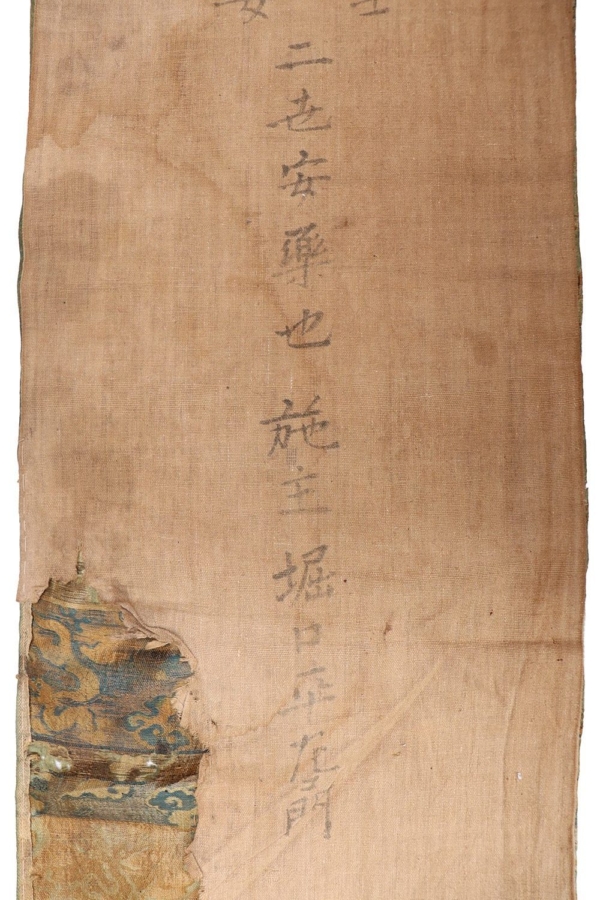 二世安藥也 施主 堀口平左門